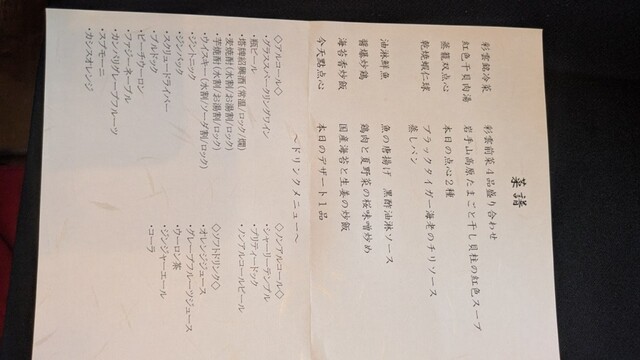 菜譜
彩雲銘冷菜　彩雲前菜４品盛り合わせ
紅色干貝肉湯　岩手山高原たまごと干し貝柱の紅色スープ
蒸籠双点心　本日の点心２種
乾焼蝦仁球　ブラックタイガー海老のチリソース
蒸しパン
油淋鮮魚　魚の唐揚げ　黒酢油淋ソース
醤爆炒鶏　鶏肉と夏野菜の桜味噌炒め
海苔香炒飯　国産海苔と生姜の炒飯
今天點点心　本日のデザート１品
～ドリンクメニュー～
◇アルコール◇
・グラススパークリングワイン
・瓶ビール
・塔牌紹興酒(常温/ロック/燗)
・麦焼酎(水割/お湯割/ロック)
・芋焼酎(水割/お湯割/ロック)
・ウイスキー(水割/ソーダ割/ロック)
・ジントニック
・ジンバック
・スクリュードライバー
・ブルドック
・ピーチウーロン
・ファジーネーブル
・カンパリグレープフルーツ
・スプモーニ
・カシスオレンジ
◇ノンアルコール◇
・シャーリーテンプル
・プリティードック
・ノンアルコールビール
◇ソフトドリンク◇
・オレンジジュース
・グレープフルーツジュース
・ウーロン茶
・ジンジャーエール
・コーラ